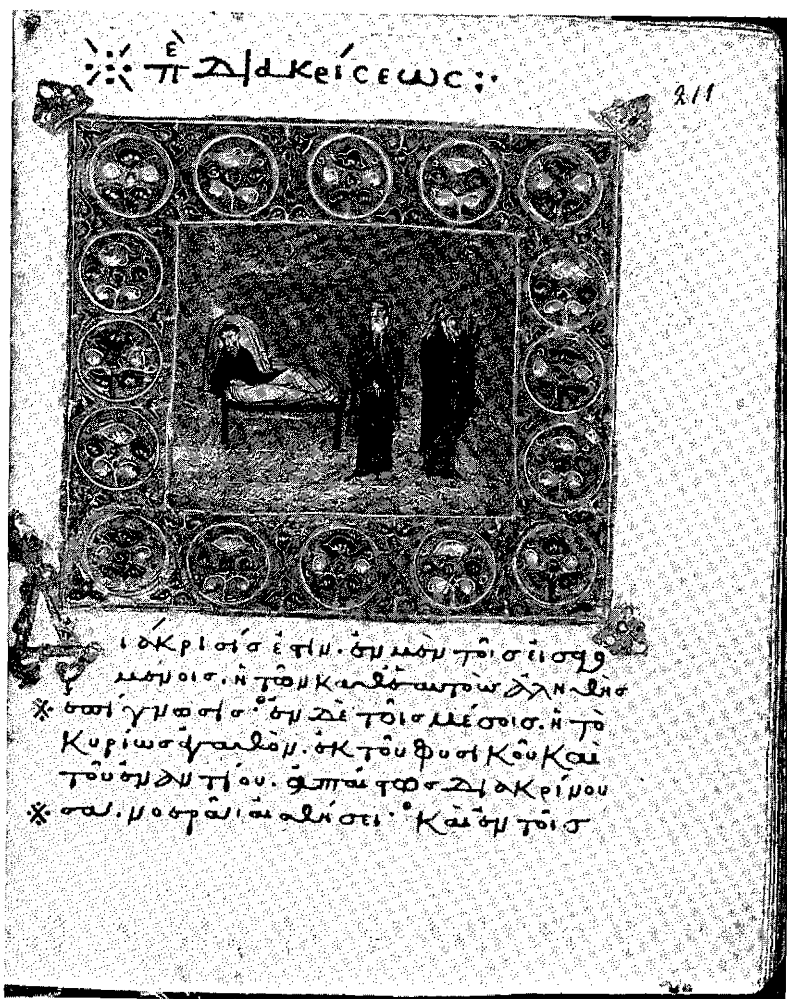 ἐπ διακρείσεως
211
ιάκρισίς ἐστιν· ἐν μὲν τοῖς εἰσαγο
μένοις· ἡ τῶν καθ' ἑαυτῶν ἀληθὴς
ἐπίγνωσις· ἐν δὲ τοῖς μέσοις· ἡ τὸ
κυρίως ἀγαθὸν· ἐκ τοῦ φυσικοῦ καὶ
τοῦ ἐναντίου· ἀπταίστως διακρίνου
σα· νοερὰ αἴσθησις· καὶ ἐν τοῖς